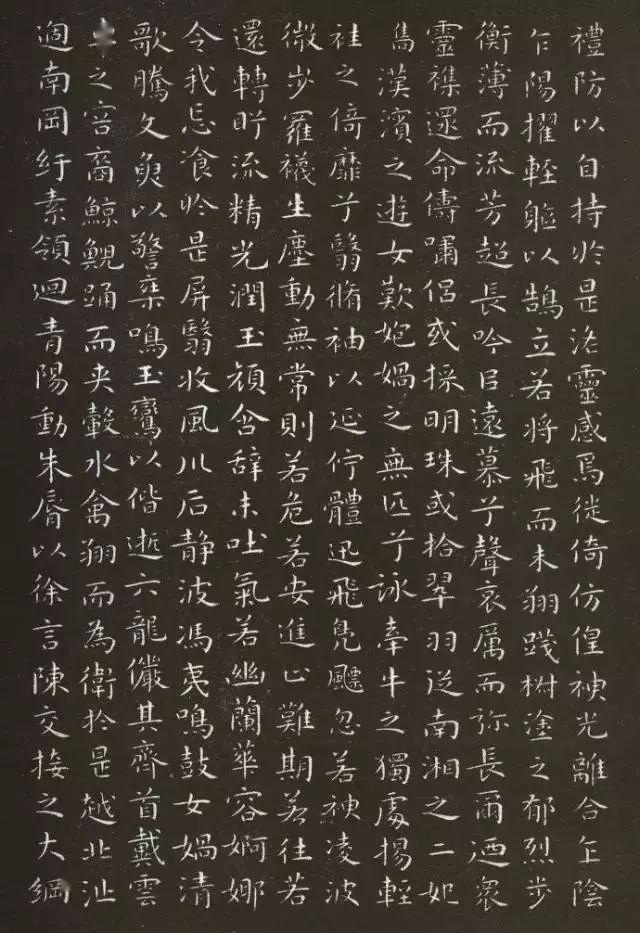 禮防以自持於是洛靈感焉徙倚仿偟神光離合乍陰
乍陽擢輕軀以鵠立若將飛而未翔踐椒塗之郁烈步
衡薄而流芳超長吟㠯遠慕兮聲哀厲而弥長爾迺衆
靈襍遝命儔嘯侶或採明珠或拾翠羽從南湘之二妃
攜漢濱之遊女歎㚿媧之無匹兮詠牽牛之獨處揚輕
袿之倚靡兮翳脩袖以延佇體迅飛鳧飄忽若神凌波
微步羅襪生塵動無常則若危若安進止難期若往若
還轉眄流精光潤玉顏含辞未吐氣若幽蘭華容婀娜
令我忘飡於是屏翳收風川后静波馮夷鳴鼓女媧清
歌騰文魚以警乘鳴玉鸞以偕逝六龍儼其齊首戴雲
車之容裔鯨鯢踊而夾轂水禽翔而為衛於是越北沚
過南岡紆素領迴青陽動朱脣以徐言陳交接之大綱